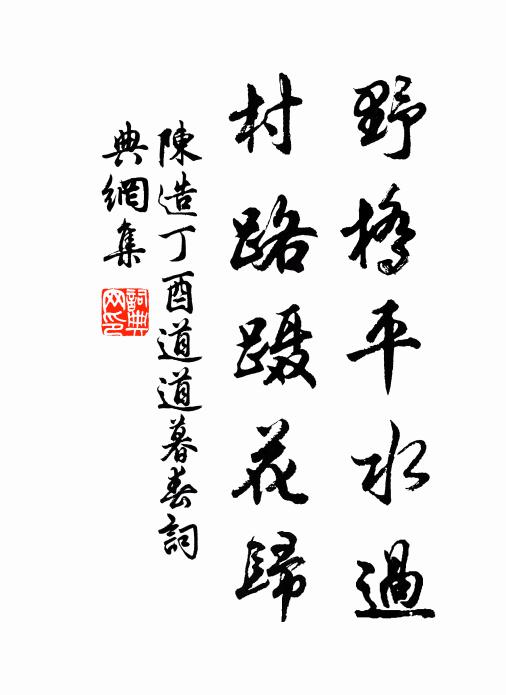 野橋平水過
村路蹑花歸
陳造丁酉道道暮春詞
典網集
詞典
网印